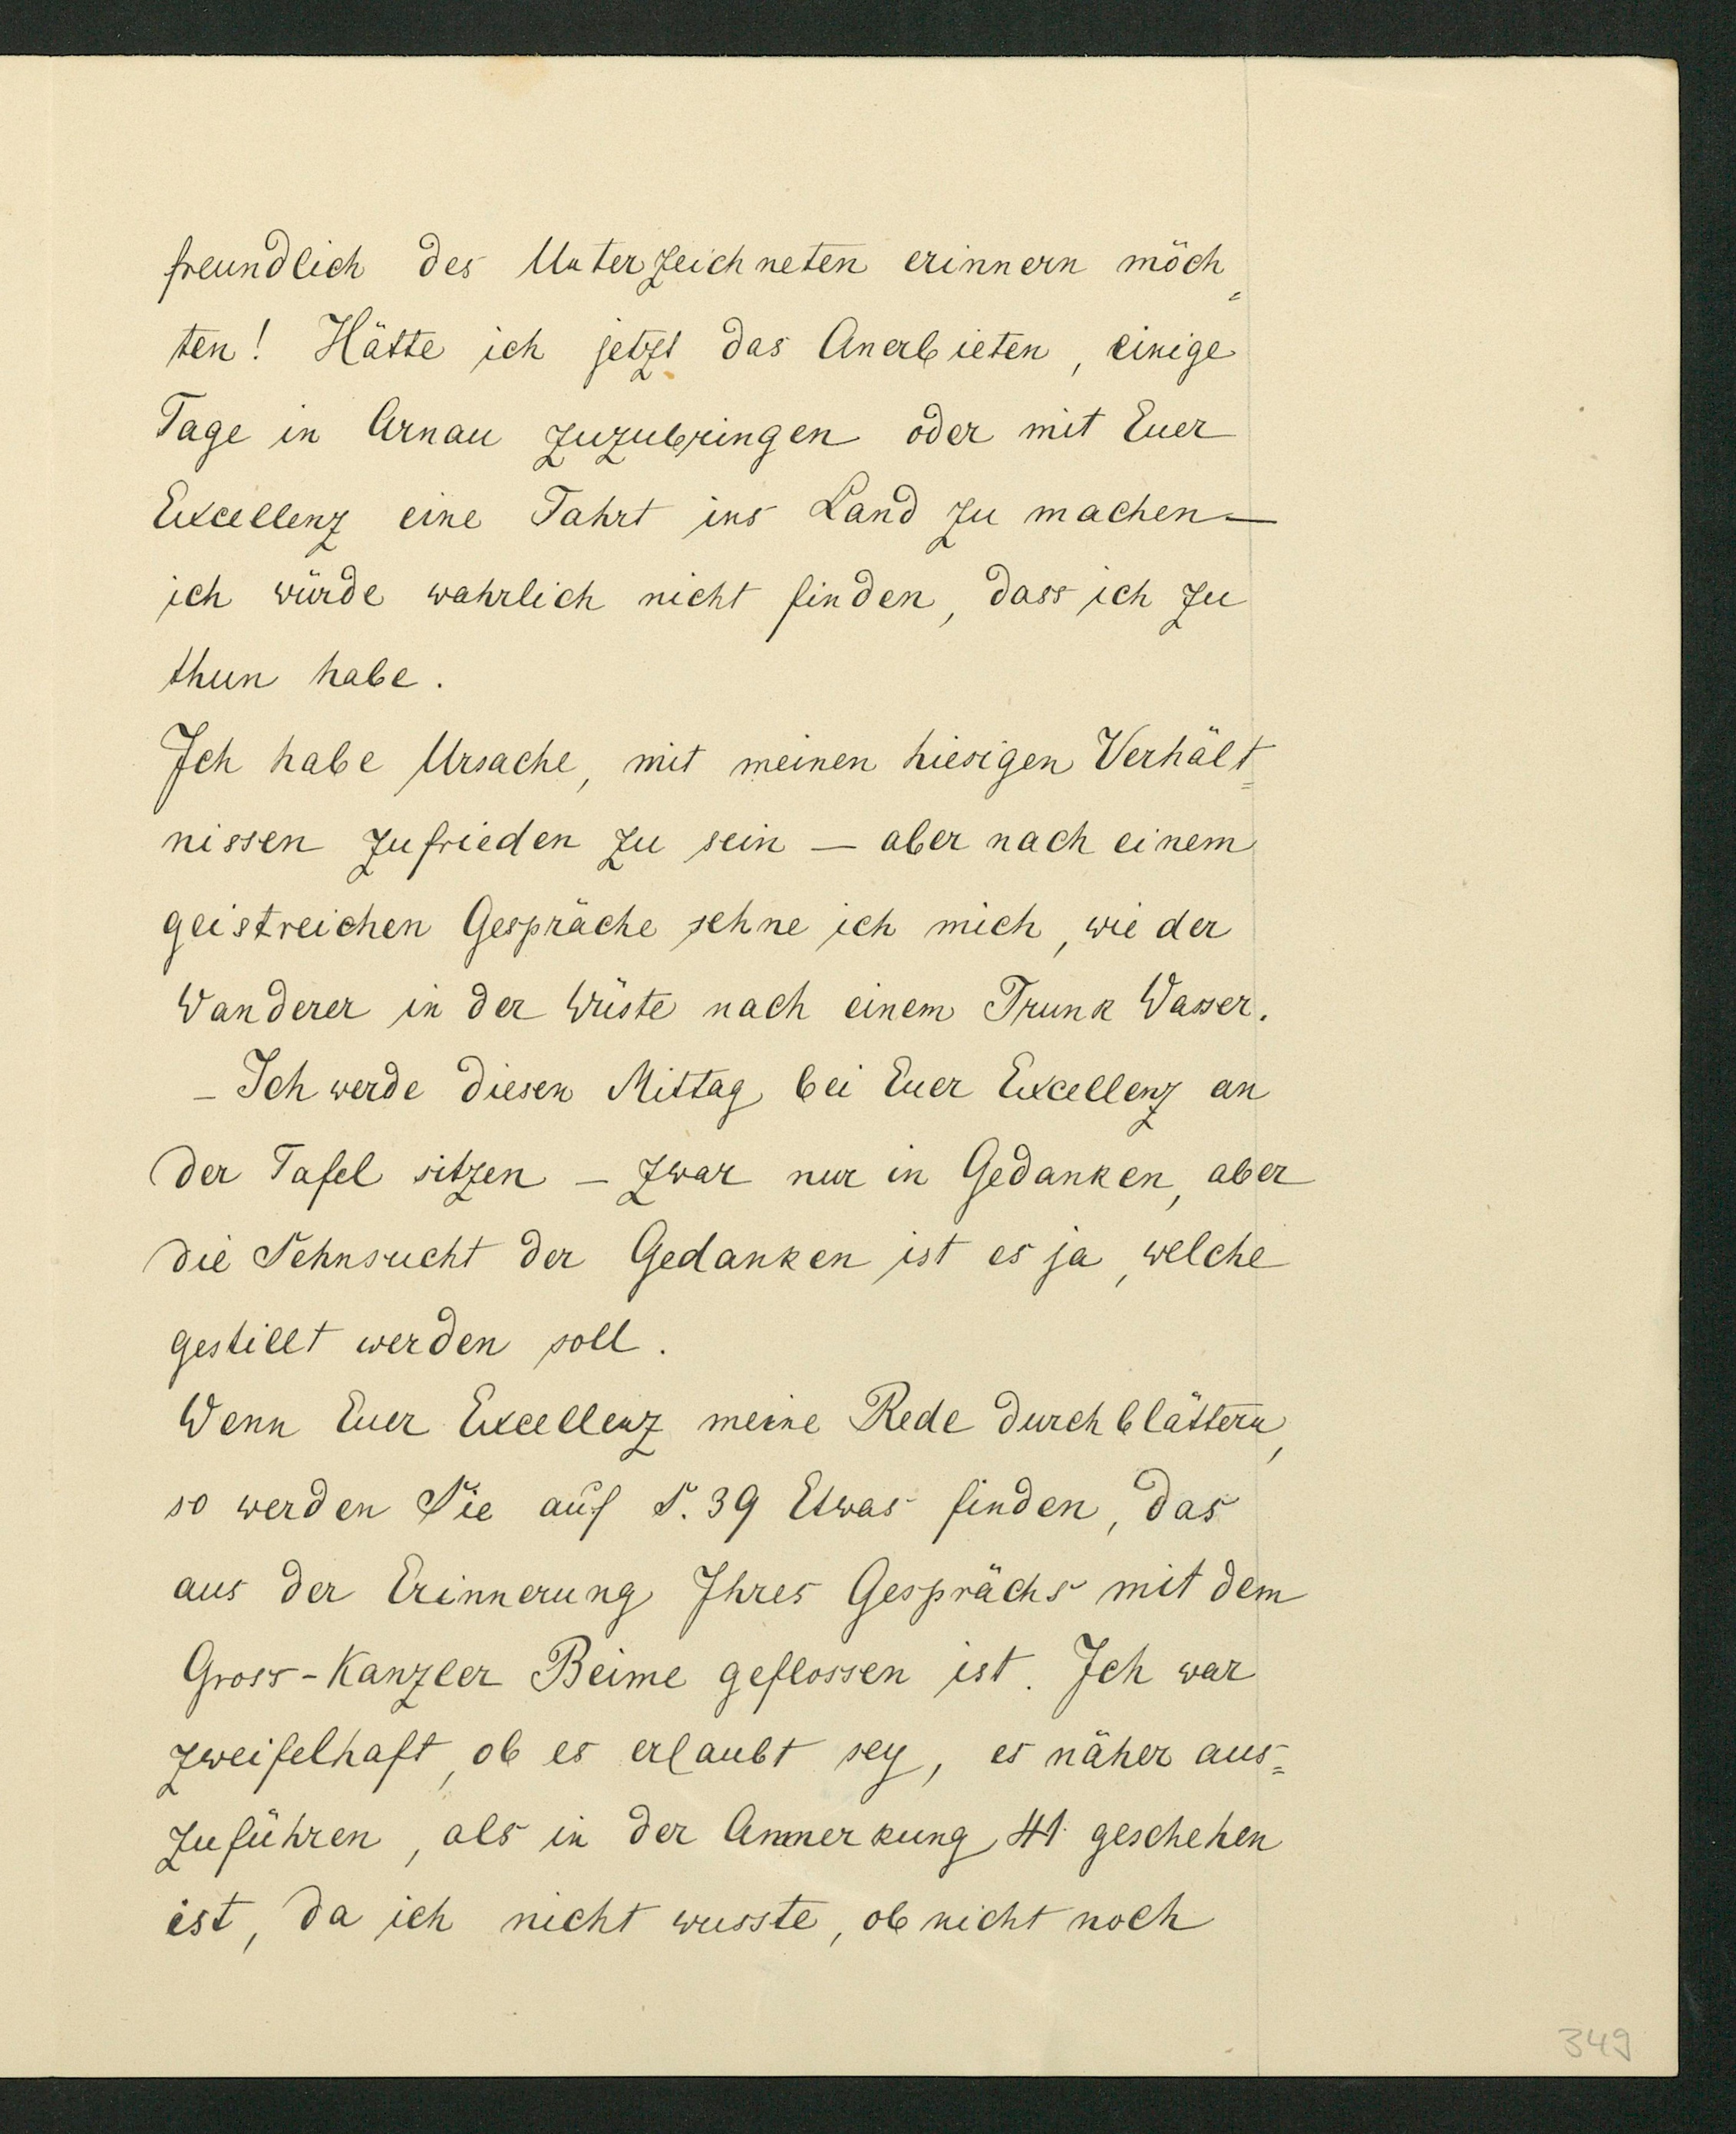 freundlich des Unterzeichneten erinnern möch=
ten! Hätte ich jetzt das Anerbieten, einige
Tage in Arnau zuzubringen oder mit Euer
Excellenz eine Fahrt ins Land zu machen —
ich würde wahrlich nicht finden, dass ich zu
thun habe.
Ich habe Ursache, mit meinen hiesigen Verhält=
nissen zufrieden zu sein — aber nach einem
geistreichen Gespräche sehne ich mich, wie der
Wanderer in der Wüste nach einem Trunk Wasser.
— Ich werde diesen Mittag bei Euer Excellenz an
der Tafel sitzen — zwar nur in Gedanken, aber
die Sehnsucht der Gedanken ist es ja, welche
gestillt werden soll.
Wenn Euer Excellenz meine Rede durchblättern,
so werden Sie auf S. 39 Etwas finden, das
aus der Erinnerung Ihres Gesprächs mit dem
Gross-Kanzler Beime geflossen ist. Ich war
zweifelhaft, ob es erlaubt sey, es näher aus=
zuführen, als in der Anmerkung 41 geschehen
ist, da ich nicht wusste, ob nicht noch
349